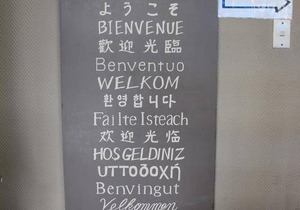 ようこそ
BIENVENUE
歡迎光臨
Benventuo
WELKOM
환영합니다
Failte Isteach
欢迎光临
HOSGELDINIZ
υττοδοχή
Benvingut
Velkommen